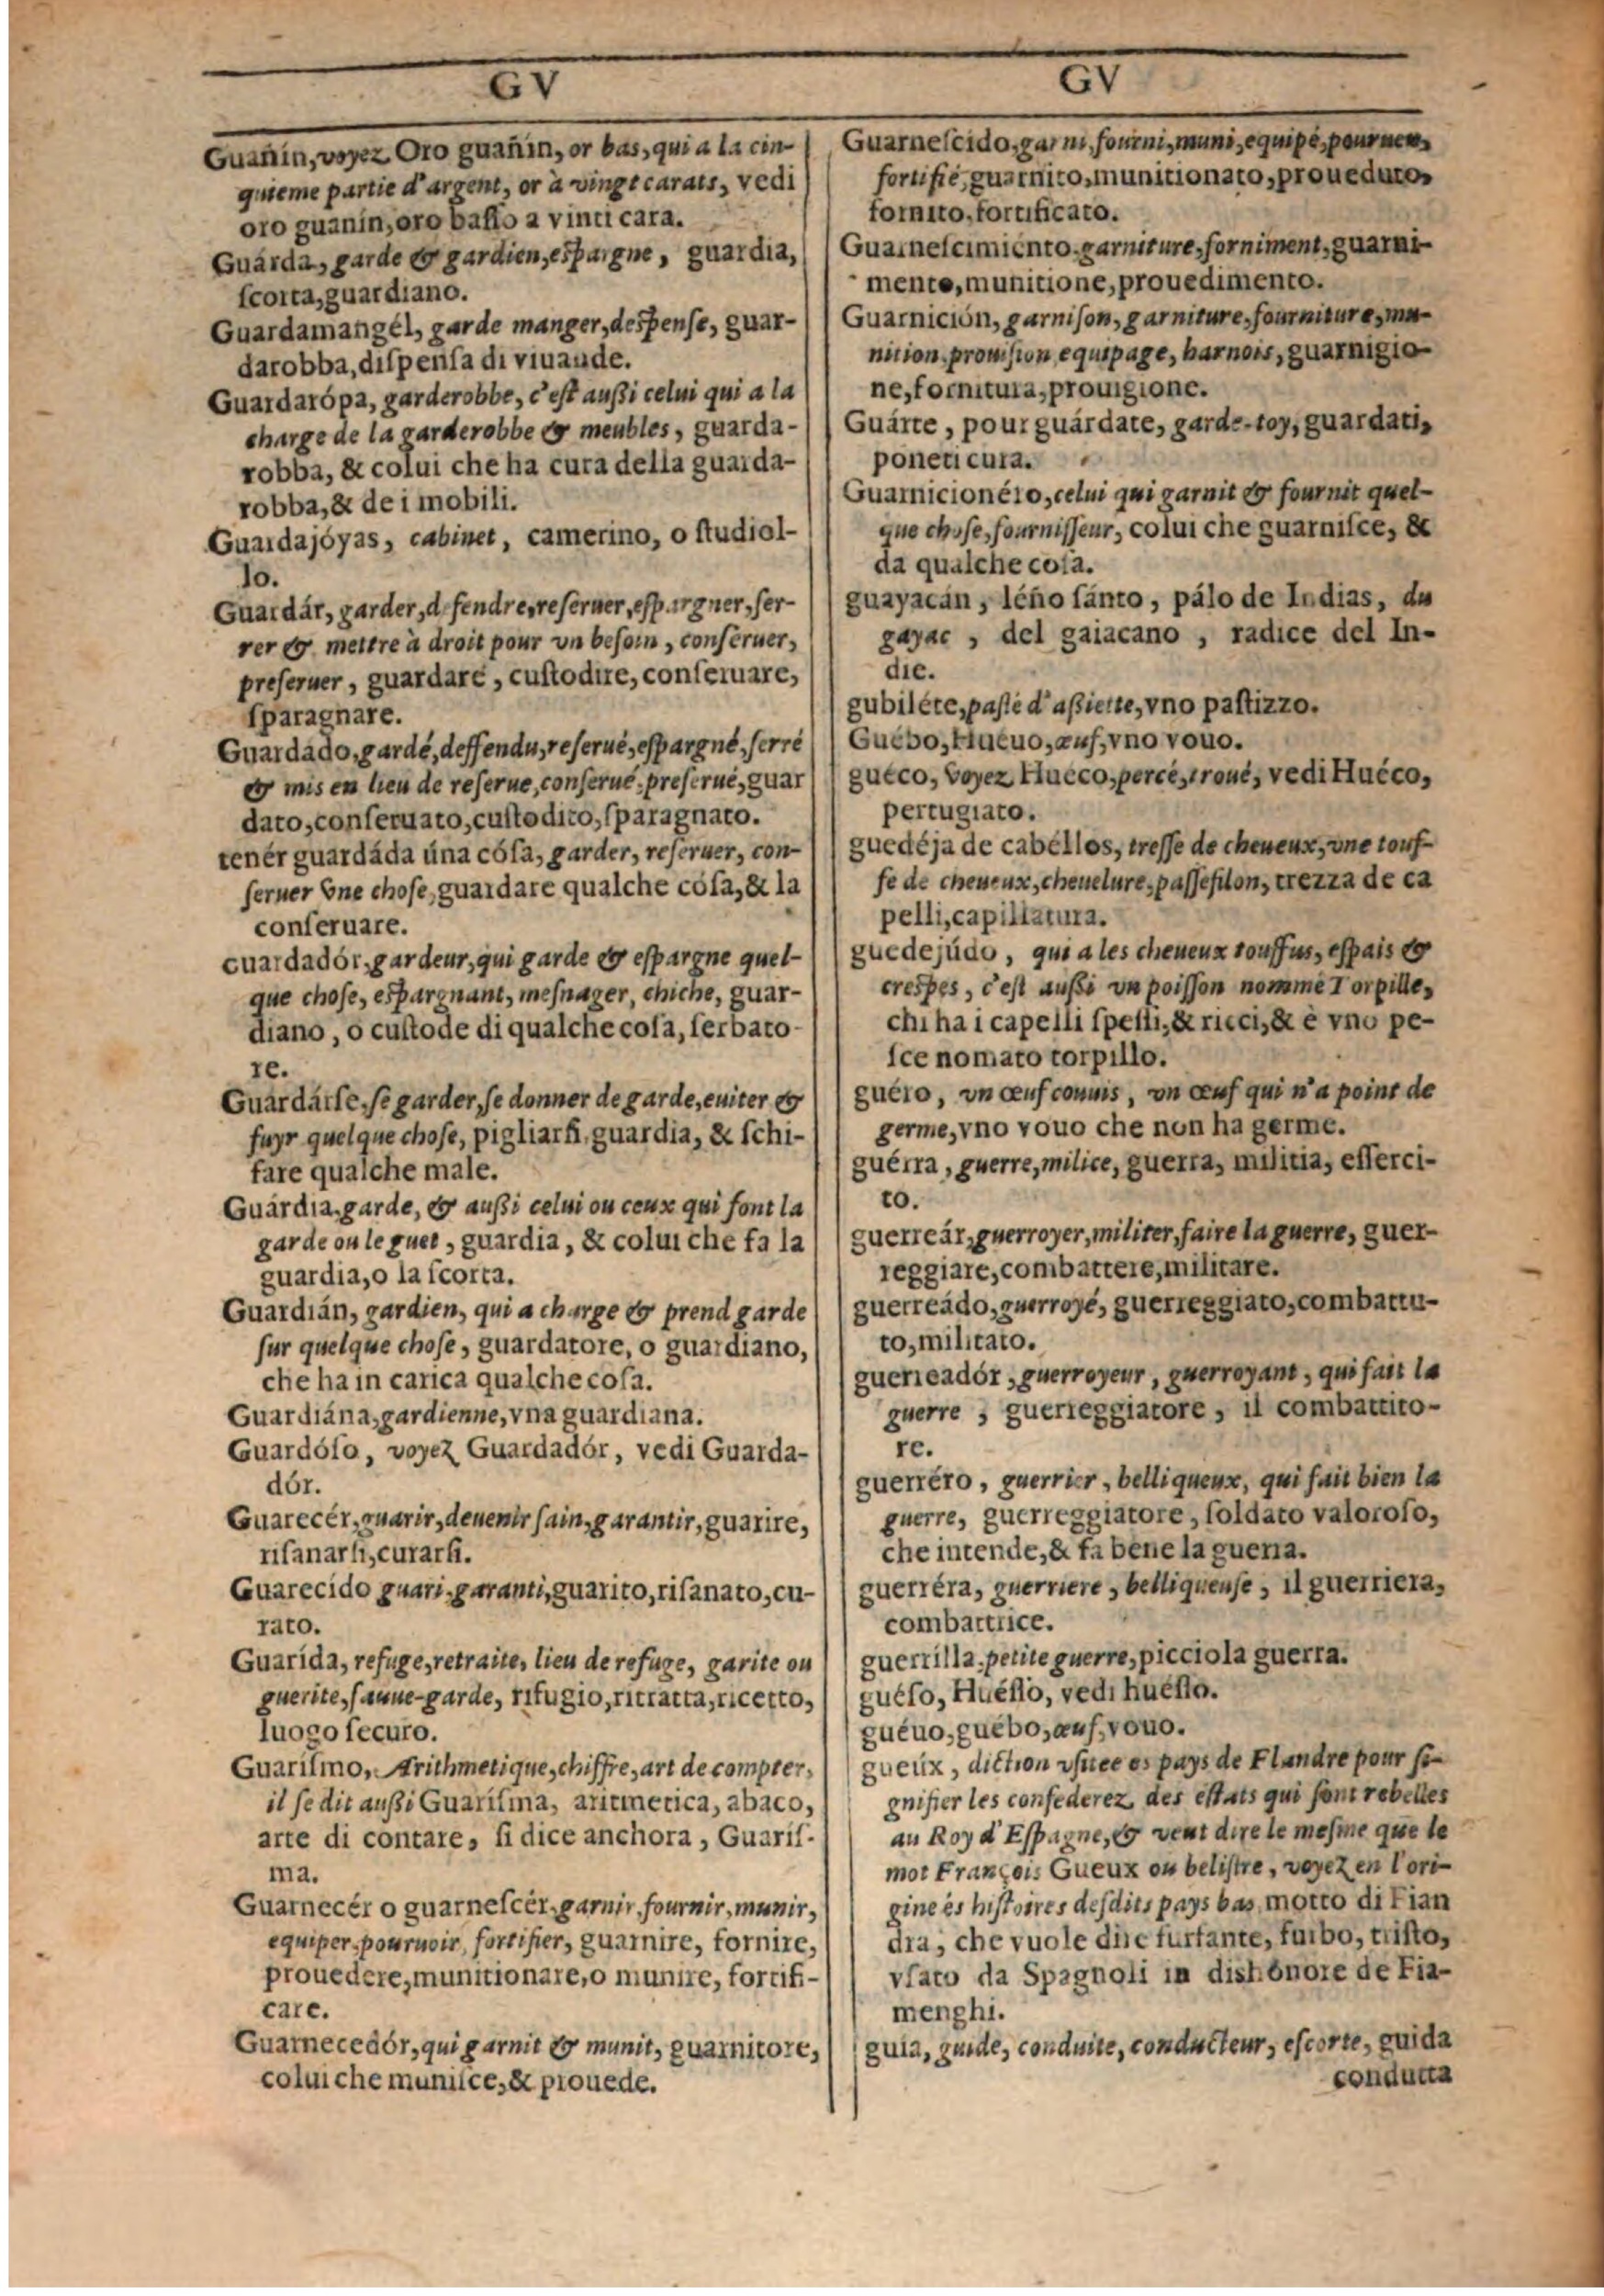 GV
Guañín, voyez Oro guañín, or bas, qui a la cin-
quieme partie d'argent, or à vingt carats, vedi
oro guanín, oro baſſo a vinti cara.
Guárda, garde & gardien, eſpargne, guardia,
ſcorta, guardiano.
Guardamangél, garde manger, deſpenſe, guar-
darobba, diſpenſa di viuande.
Guardarópa, garderobbe, c'eſt auſſi celui qui a la
charge de la garderobbe & meubles, guarda-
robba, & colui che ha cura della guarda-
robba, & de i mobili.
Guardajóyas, cabinet, camerino, o ſtudiol-
lo.
Guardár, garder, defendre, reſeruer, eſpargner, ſer-
rer & mettre à droit pour vn beſoin, conſeruer,
preſeruer, guardare, cuſtodire, conſeruare,
ſparagnare.
Guardádo, gardé, deffendu, reſerué, eſpargné, ſerré
& mis en lieu de reſerue, conſerué, preſerué, guar
dato, conſeruato, cuſtodito, ſparagnato.
tenér guardáda úna cóſa, garder, reſeruer, con-
ſeruer vne choſe, guardare qualche cóſa, & la
conſeruare.
cuardadór, gardeur, qui garde & eſpargne quel-
que choſe, eſpargnant, meſnager, chiche, guar-
diano, o cuſtode di qualche coſa, ſerbato-
re.
Guardárſe, ſe garder, ſe donner de garde, euiter &
fuyr quelque choſe, pigliarſi, guardia, & ſchi-
fare qualche male.
Guárdia, garde, & auſſi celui ou ceux qui font la
garde ou le guet, guardia, & colui che fa la
guardia, o la ſcorta.
Guardián, gardien, qui a charge & prend garde
ſur quelque choſe, guardatore, o guardiano,
che ha in carica qualche coſa.
Guardiána, gardienne, vna guardiana.
Guardóſo, voyez Guardadór, vedi Guarda-
dór.
Guarecér, guarir, deuenir ſain, garantir, guarire,
riſanarſi, curarſi.
Guarecído guari, garanti, guarito, riſanato, cu-
rato.
Guarída, refuge, retraite, lieu de refuge, garite ou
guerite, ſauue-garde, rifugio, ritratta, ricetto,
luogo ſecuro.
Guariſmo, Arithmetique, chiffre, art de compter,
il ſe dit auſſi Guariſma, aritmetica, abaco,
arte di contare, ſi dice anchora, Guariſ-
ma.
Guarnecér o guarneſcér, garnir, fournir, munir,
equiper, pouruoir, fortifier, guarnire, fornire,
prouedere, munitionare, o munire, fortifi-
care.
Guarnecedór, qui garnit & munit, guarnitore,
colui che muniſce, & prouede.
GV
Guarneſcido, garni, fourni, muni, equipé, pourueu,
fortifié, guarnito, munitionato, proueduto,
fornito, fortificato.
Guarneſcimiénto, garniture, forniment, guarni-
mento, munitione, prouedimento.
Guarnición, garniſon, garniture, fourniture, mu-
nition, prouiſion, equipage, harnois, guarnigio-
ne, fornitura, prouigione.
Guárte, pour guárdate, garde-toy, guardati,
poneti cura.
Guarnicionéro, celui qui garnit & fournit quel-
que choſe, fourniſſeur, colui che guarniſce, &
da qualche coſa.
guayacán, léño ſánto, pálo de Indias, du
gayac, del gaiacano, radice del In-
die.
gubiléte, paſté d'aſſiette, vno paſtizzo.
Guébo, Huéuo, œuf, vno vouo.
guéco, voyez Huéco, percé, troué, vedi Huéco,
pertugiato.
guedéja de cabéllos, treſſe de cheueux, vne touf-
fe de cheueux, cheuelure, paſſefilon, trezza de ca
pelli, capillatura.
guedejúdo, qui a les cheueux touffus, eſpais &
creſpes, c'eſt auſſi vn poiſſon nommé Torpille,
chi ha i capelli ſpeſſi, & ricci, & è vno pe-
ſce nomato torpillo.
guéro, vn œuf couuis, vn œuf qui n'a point de
germe, vno vouo che non ha germe.
guérra, guerre, milice, guerra, militia, eſſerci-
to.
guerreár, guerroyer, militer, faire la guerre, guer-
reggiare, combattere, militare.
guerreádo, guerroyé, guerreggiato, combattu-
to, militato.
guerreadór, guerroyeur, guerroyant, qui fait la
guerre, guerreggiatore, il combattito-
re.
guerréro, guerrier, belliqueux, qui fait bien la
guerre, guerreggiatore, ſoldato valoroſo,
che intende, & fa bene la guerra.
guerréra, guerriere, belliqueuſe, il guerriera,
combattrice.
guerrilla, petite guerre, picciola guerra.
guéſo, Huéſſo, vedi huéſſo.
guéuo, guébo, œuf, vouo.
gueúx, diction vſitee es pays de Flandre pour ſi-
gnifier les confederez des eſtats qui ſont rebelles
au Roy d'Eſpagne, & veut dire le meſme que le
mot François Gueux ou beliſtre, voyez en l'ori-
gine és hiſtoires deſdits pays bas, motto di Fian
dra, che vuole dire furfante, furbo, triſto,
vſato da Spagnoli in dishonore de Fia-
menghi.
guía, guide, conduite, conducteur, eſcorte, guida
conducta